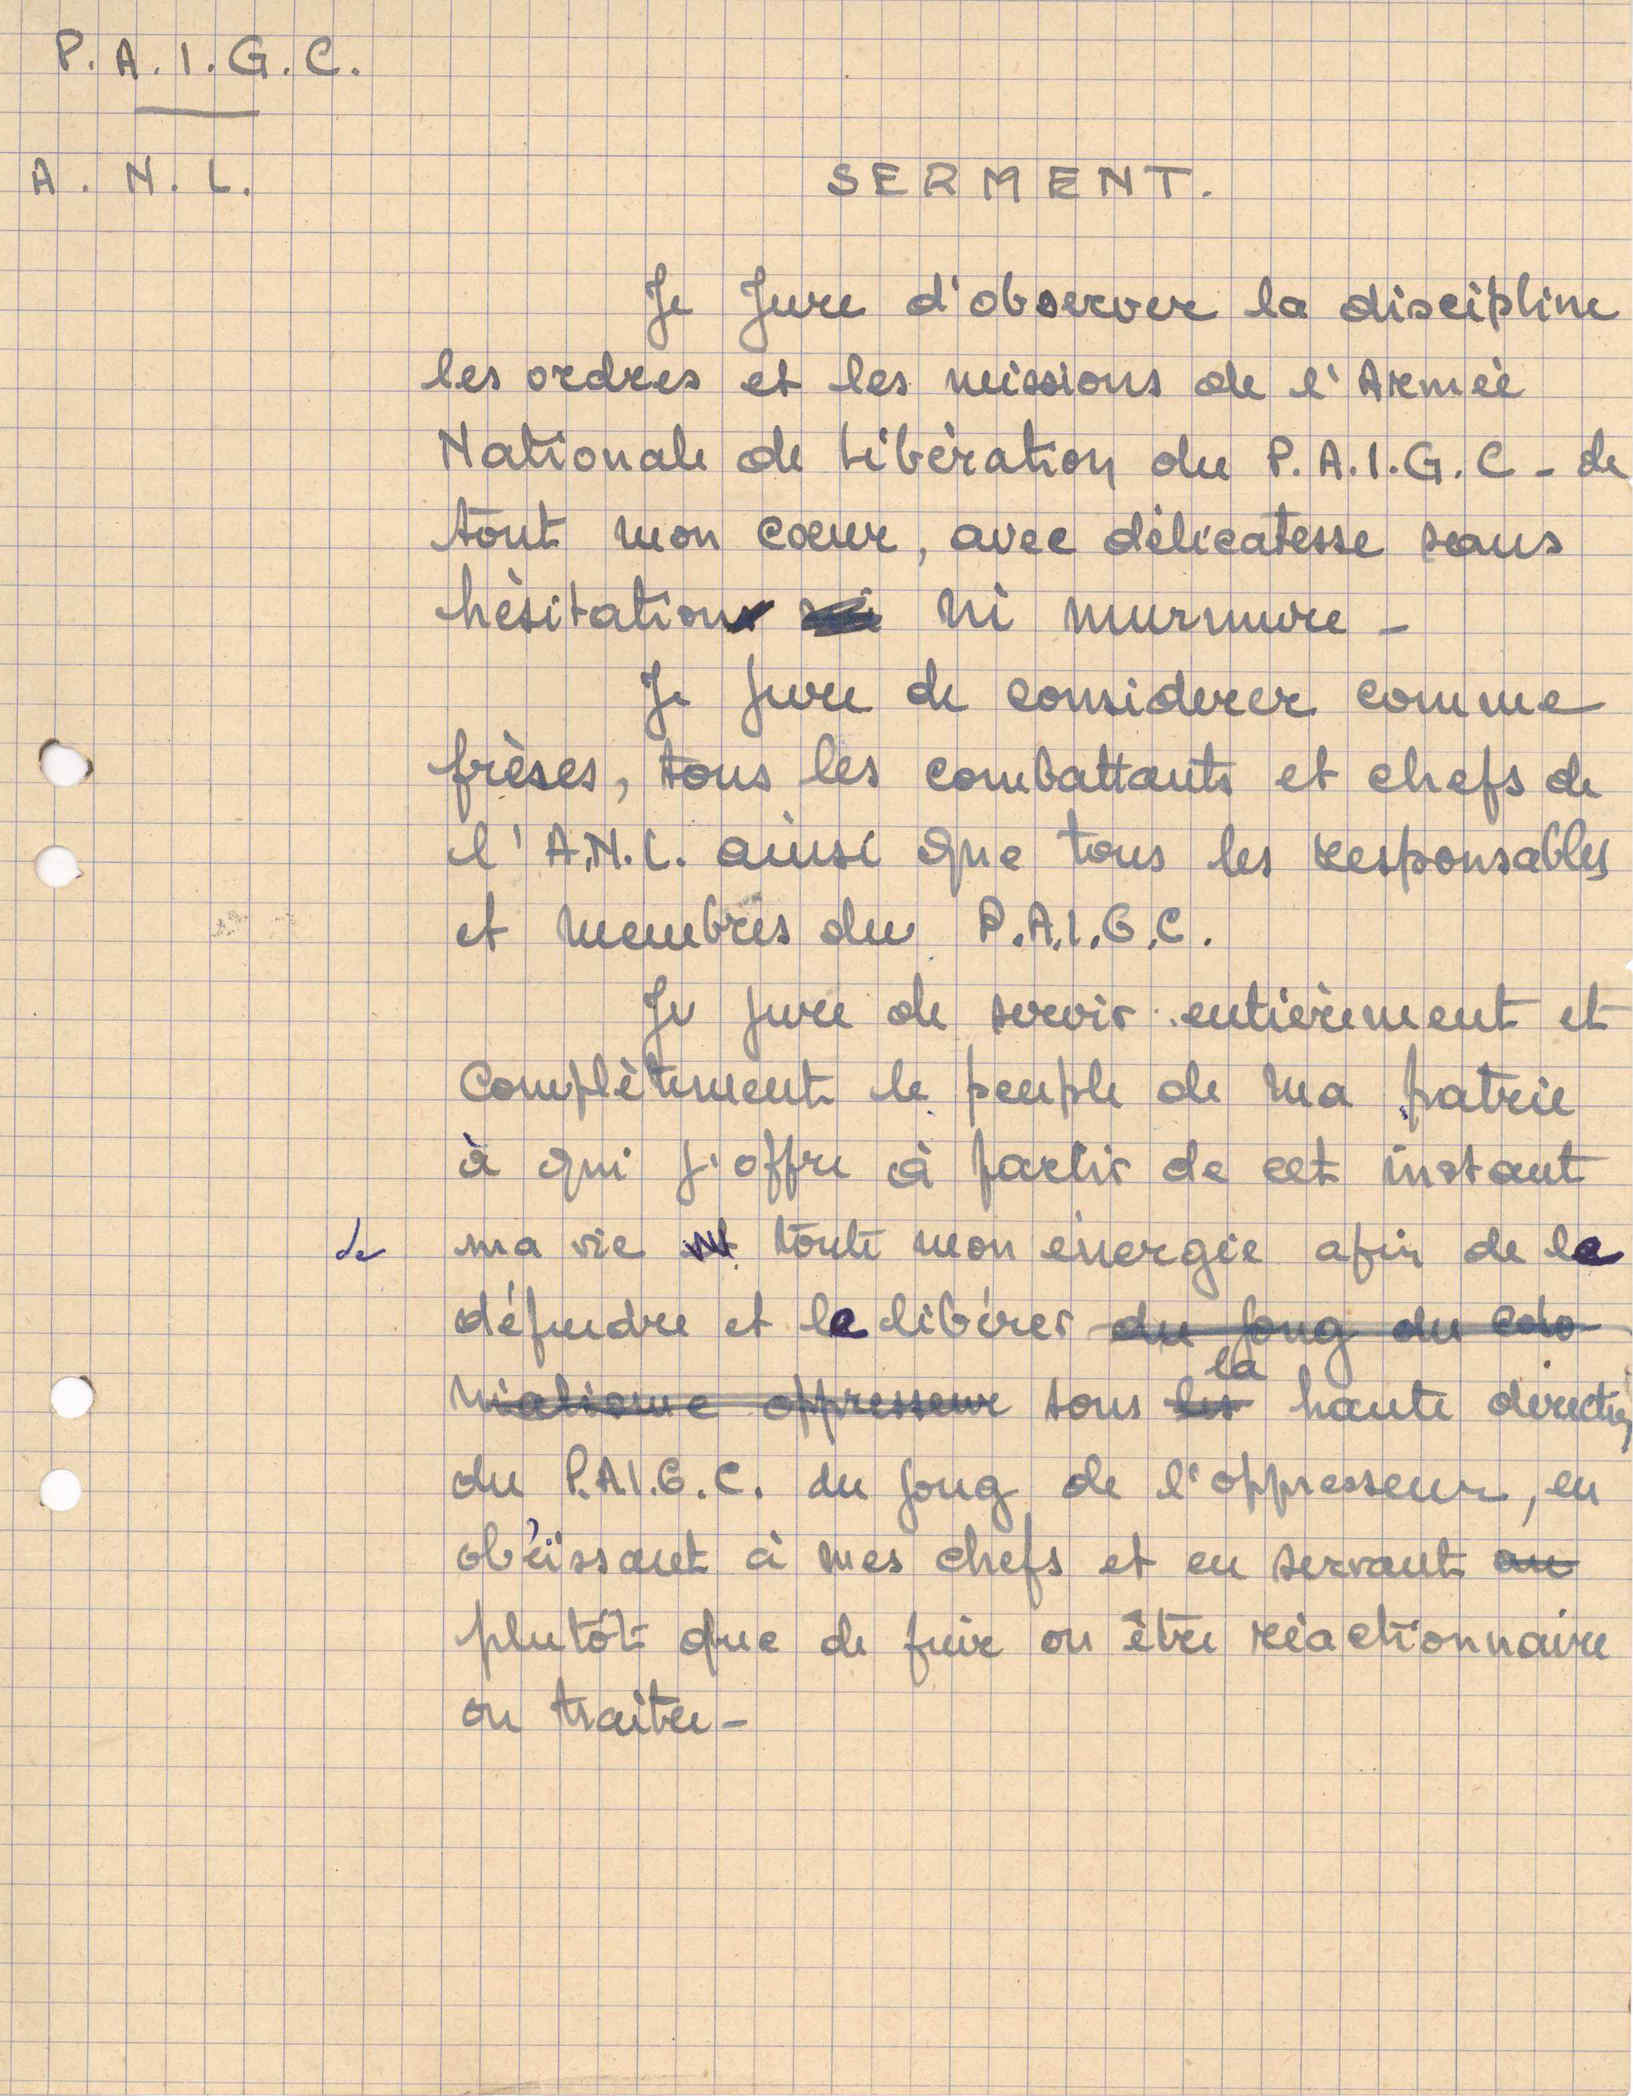 P.A.I.G.C.
A.N.L.
SERMENT.
Je Jure d'observer la discipline
les ordres et les missions de l'Armée
Nationale de Libération du P.A.I.G.C - de
tout mon cœur, avec délicatesse sans
hésitation ni murmure -
Je jure de considerer comme
frères, tous les combattants et chefs de
l'A.N.L. ainsi que tous les responsables
et membres du P.A.I.G.C.
Je jure de servir entièrement et
Complètement le peuple de ma patrie
à qui j'offre à partir de cet instant
de
ma vie et toute mon énergie afin de le
défendre et le libérer du joug du colo-
nialisme oppresseur sous les la haute direction
du P.A.I.G.C. du joug de l'oppresseur, en
obéissant à mes chefs et en servant au
plutôt que de fuir ou être réactionnaire
ou traitre -